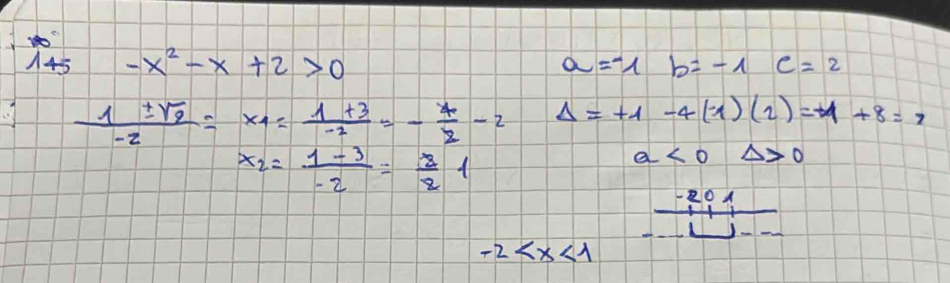 145 -x² - x + 2 > 0 a = -1 b = -1 c = 2
(1 ± √9)/(-2) = x1 = (1 + 3)/(-2) = - 4/2 - 2 Δ = +1 - 4(-1)(2) = +1 + 8 = 9
x2 = (1 - 3)/(-2) = 2/2 1 a < 0 Δ > 0
-2 0 1
-2 < x < 1